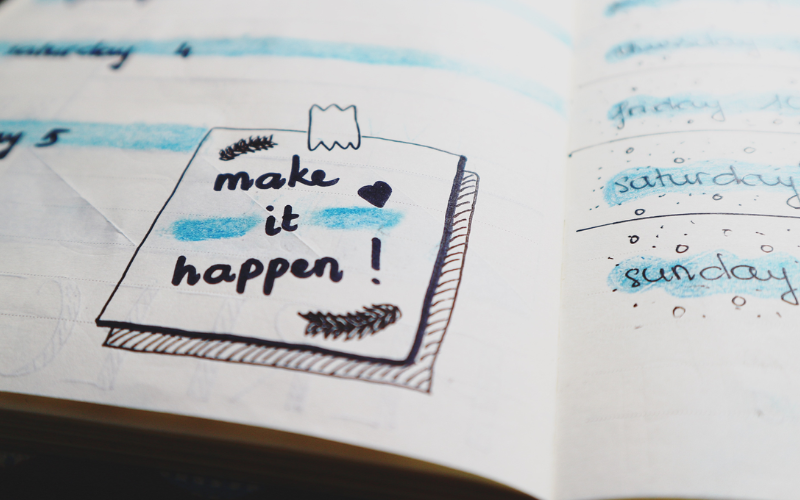 saturday 4
5
make
it
happen !
thursday
friday
saturday
sunday